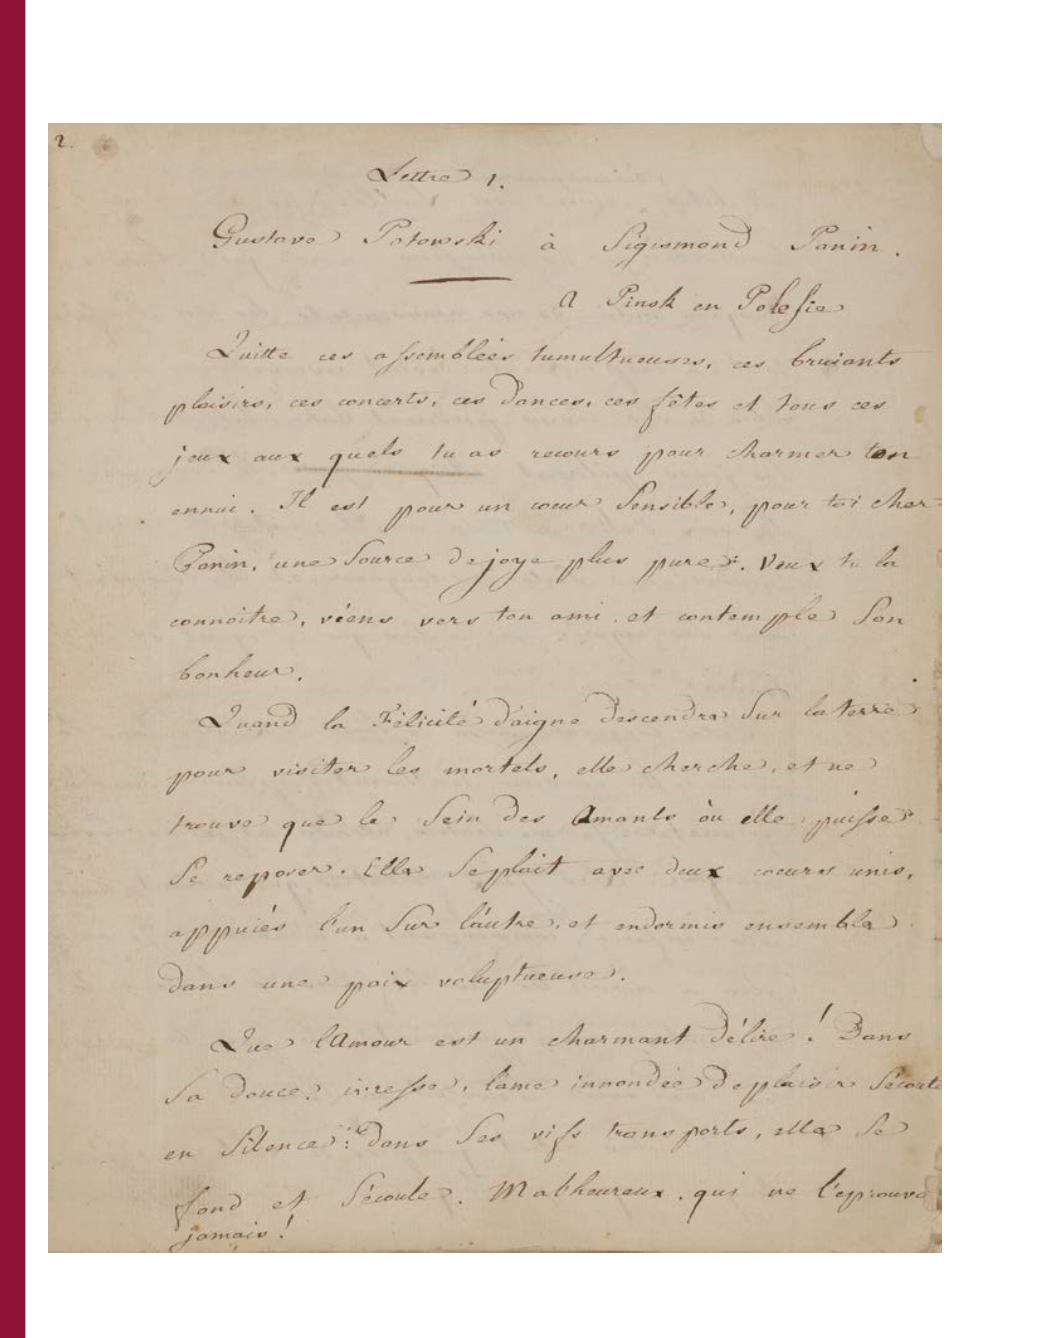 2.
Lettre 1.
Gustave Potowski à Sigismond Panin.
A Pinsk en Polesie
Quitte ces assemblées tumultueuses, ces bruiants
plaisirs, ces concerts, ces dances, ces fêtes et tous ces
jeux aux quels tu as recours pour charmer ton
ennui. Il est pour un coeur Sensible, pour toi cher
Panin, une Source de joye plus pure. Veux tu la
connoitre, viens vers ton ami et contemple Son
bonheur.
Quand la Félicité daigne descendre Sur la terre
pour visiter les mortels, elle cherche, et ne
trouve que le Sein des Amants où elle puisse
Se reposer. Elle Se plait avec deux coeurs unis,
appuiés l'un Sur l'autre, et endormis ensemble
dans une paix voluptueuse.
Que l'Amour est un charmant délire! Dans
Sa douce ivresse, l'ame innondée de plaisir S'écoute
en Silence: dans Ses vifs transports, elle Se
fond et S'écoule. Malheureux qui ne l'eprouva
jamais!